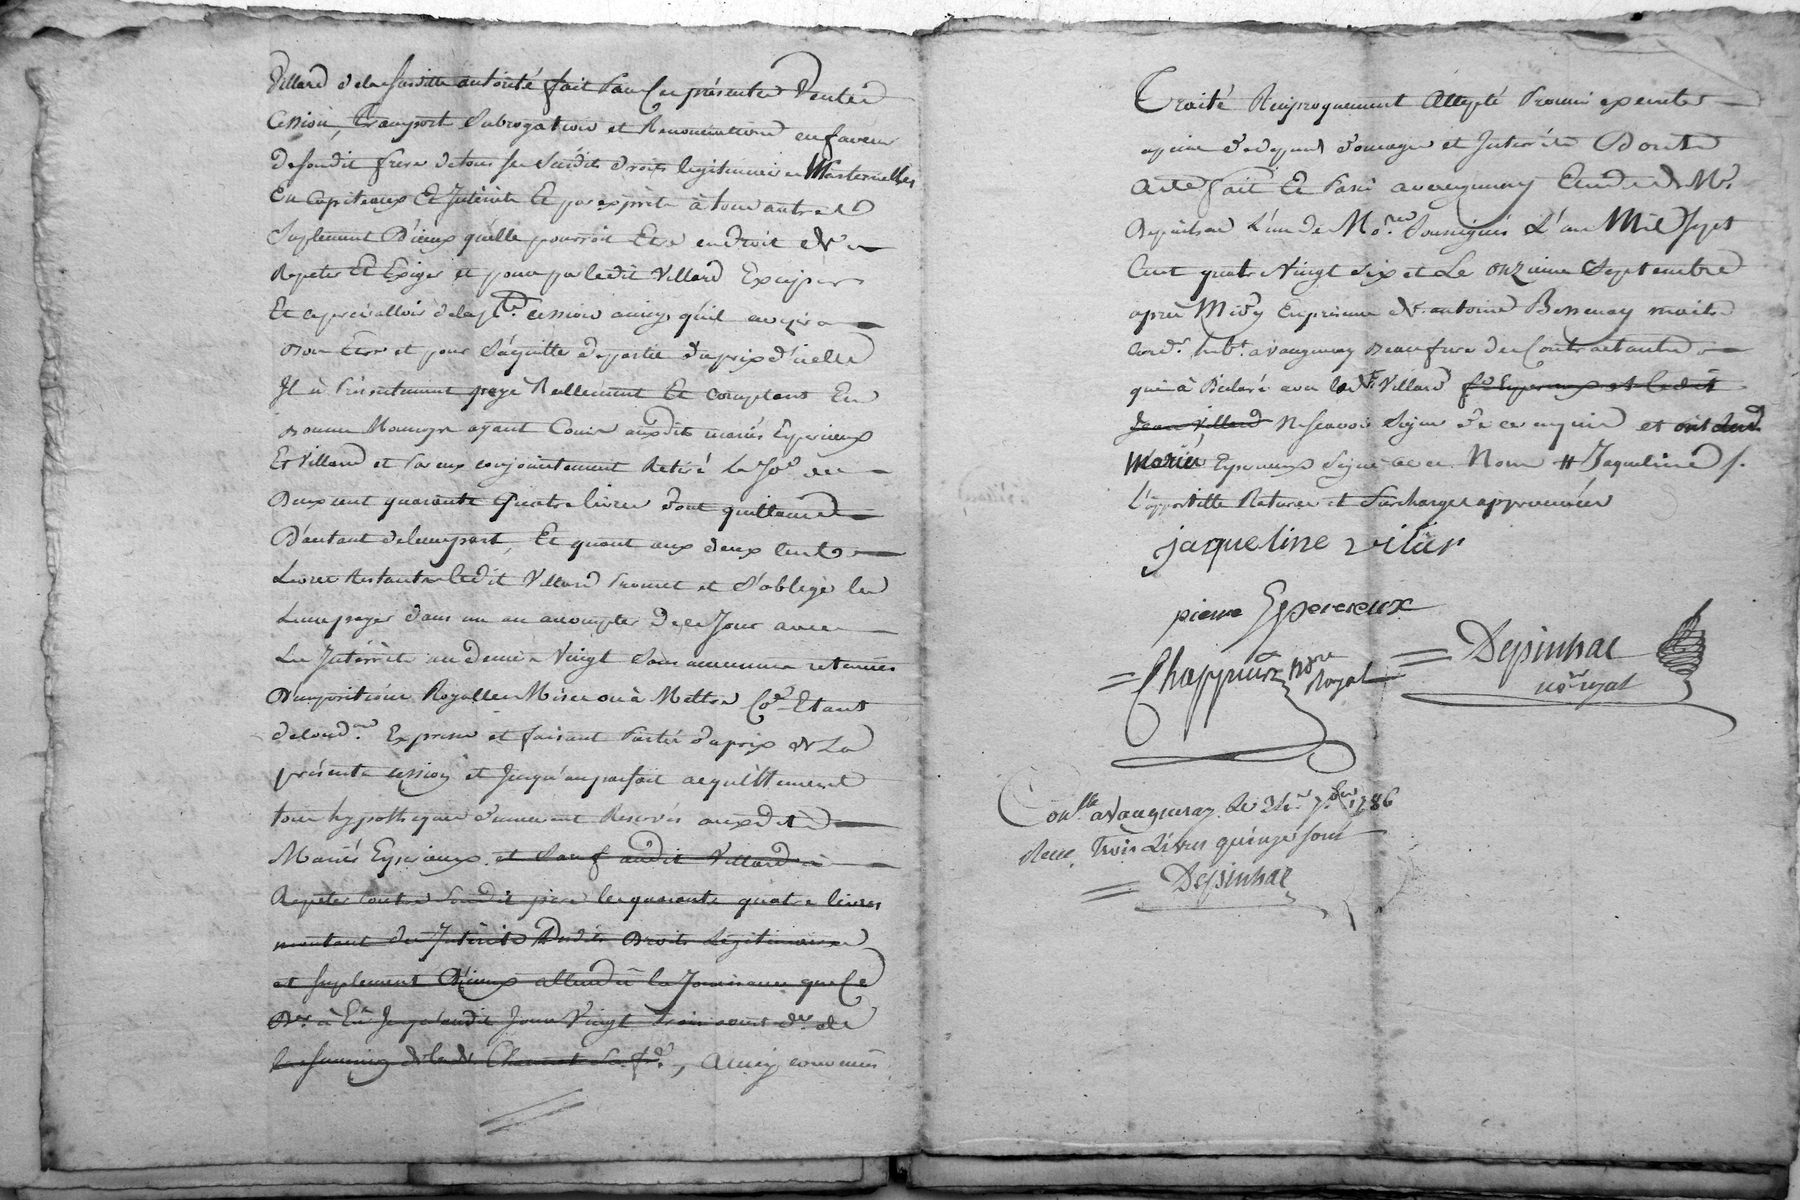 Villard de la susditte autorité fait par ces présentes Vente
Cession, transport Subrogation et Renonciation en faveur
de sondit frere de tous ses Susdits droits legitimaires Maternelles
En Capiteaux Et Intérêts Et par exprès à tout autre
Suplement D'iceux qu'elle pourroit Etre en droit de
Repeter Et Exiger et pour par ledit Villard
Et de la pte. cession ainsy qu'il avizera
bon Etre et pour partie du prix d'icelle
Il a Présentement payé Reellement Et comptant En
Bonne Monnoye ayant Cours auxdits mariés Eyserieux
Et Villard et par eux conjointement Retiré la So. de
Deux cent quarante quatre livres dont quittance
D'autant de leur part, Et quant aux deux Cent
Livres Restante ledit Villard Promet et S'oblige les
Leur payer dans un an a compter De ce Jour avec
Les Intérêts au denier Vingt Sans aucunes retenues
D'impositions Royalles Mises ou à Mettre Co. Etant
de cond.on Expresse et faisant Partie du prix de La
présente cession et Jusqu'au parfait acquittement
tous hypotheques demeurent Reservés auxdits
Mariés Eyserieux et Sauf audit Villard à
Repeter contre Sondit pere les quarante quatre livres
montant des Intérêts Desdits Droits Légitimaires
et Suplement D'iceux attendu la Jouissance que Ce
Der. à Eu Jusqu'audit Jour Vingt trois aout der.
Ainsy convenus
Traité Reciproquement Accepté Promis executer
a peine de depens domages et Interêts Dont
Acte fait Et Passé a vaugneray Etude de Me.
Depinhac L'un des No.res Soussignés L'an Mil Sept
Cent quatre Vingt Six et Le onzieme Septembre
après Midy En presence de Sr. antoine Bessenay maitre
Cord.r hab.t a Vaugneray Beaufrere des Contractants
qui à Déclaré avec led. Villard Sr. Eyserieux et ledit
Jean Villard Ne Scavoir Signer De ce enquis et ont lesd.
Mariés Eyserieux Signé avec Nous # Jaqueline /.
L'appostille Ratures et Surcharges approuvées
jaqueline vilür
pierre Eysereieux
= Chappuis No.re Royal
= Depinhac
no.re royal
Con.lle a Vaugneray Le 24e. 7.bre 1786
Recu Trois Livres quinze sous
= Depinhac